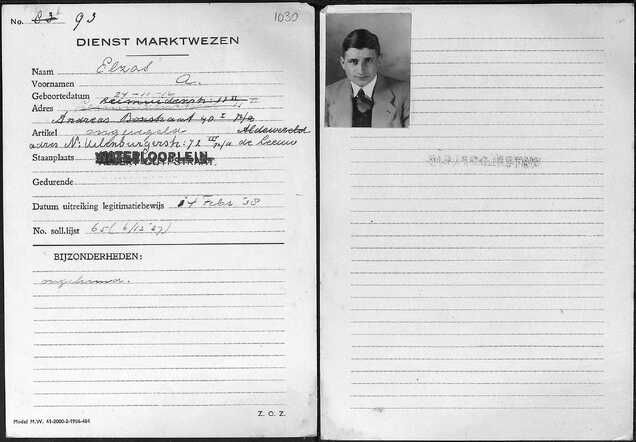 No. 83 93
1030
DIENST MARKTWEZEN
Naam Elzas
Voornamen A.
Geboortedatum 27-11-12
Adres
Andreas Bonstraat 40 I
Artikel ongeregeld
adres N. Uilenburgerstr: 72 III de Leeuw
Staanplaats WATERLOOPLEIN.
ALBERT CUYPSTRAAT.
Gedurende
Datum uitreiking legitimatiebewijs 14 Febr '38
No. soll.lijst 65 (6/12 '37)
BIJZONDERHEDEN:
ongehuwd.
Z. O. Z.
Model M.W. 41-2000-2-1936-484